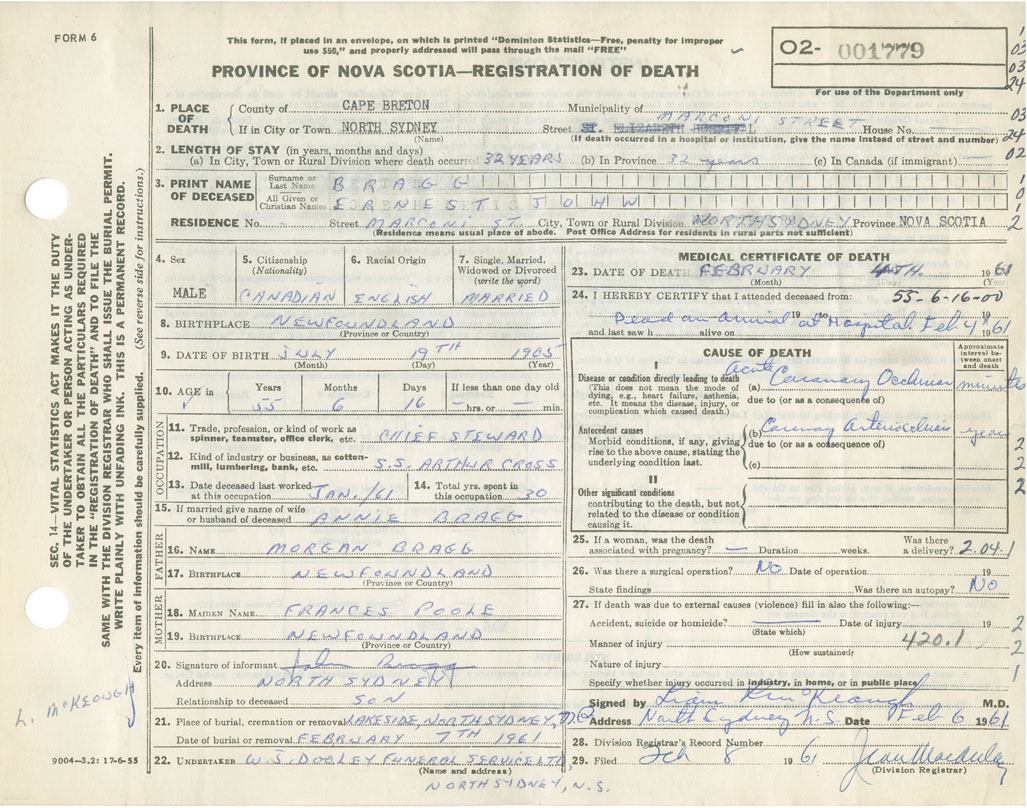 FORM 6
This form, if placed in an envelope, on which is printed "Dominion Statistics—Free, penalty for improper
use $50," and properly addressed will pass through the mail "FREE"
PROVINCE OF NOVA SCOTIA—REGISTRATION OF DEATH
O2- 001779
For use of the Department only
1
03
03
24
03
24
02
1
0
1
2
SEC. 14—VITAL STATISTICS ACT MAKES IT THE DUTY
OF THE UNDERTAKER OR PERSON ACTING AS UNDER-
TAKER TO OBTAIN ALL THE PARTICULARS REQUIRED
IN THE "REGISTRATION OF DEATH" AND TO FILE THE
SAME WITH THE DIVISION REGISTRAR WHO SHALL ISSUE THE BURIAL PERMIT.
WRITE PLAINLY WITH UNFADING INK. THIS IS A PERMANENT RECORD.
Every item of information should be carefully supplied. (See reverse side for instructions.)
1. PLACE OF DEATH
County of CAPE BRETON Municipality of
If in City or Town NORTH SYDNEY Street MARCONI STREET ST. ELIZABETH HOSPITAL House No.
(Name) (If death occurred in a hospital or institution, give the name instead of street and number)
2. LENGTH OF STAY (in years, months and days)
(a) In City, Town or Rural Division where death occurred 32 YEARS (b) In Province 32 years (c) In Canada (if immigrant)
3. PRINT NAME OF DECEASED
Surname or Last Name BRAGG
All Given or Christian Names ERNEST JOHN
RESIDENCE No. - Street MARCONI ST. City, Town or Rural Division NORTH SYDNEY Province NOVA SCOTIA
(Residence means usual place of abode. Post Office Address for residents in rural parts not sufficient)
4. Sex
MALE
5. Citizenship
(Nationality)
CANADIAN
6. Racial Origin
ENGLISH
7. Single, Married, Widowed or Divorced
(write the word)
MARRIED
8. BIRTHPLACE NEWFOUNDLAND
(Province or Country)
9. DATE OF BIRTH JULY 19TH 1905
(Month) (Day) (Year)
10. AGE in Years Months Days If less than one day old
55 6 16 — hrs. or — min.
OCCUPATION
11. Trade, profession, or kind of work as
spinner, teamster, office clerk, etc. CHIEF STEWARD
12. Kind of industry or business, as cotton-
mill, lumbering, bank, etc. S.S. ARTHUR CROSS
13. Date deceased last worked
at this occupation JAN./61
14. Total yrs. spent in
this occupation 30
15. If married give name of wife
or husband of deceased ANNIE BRAGG
FATHER
16. NAME MORGAN BRAGG
17. BIRTHPLACE NEWFOUNDLAND
(Province or Country)
MOTHER
18. MAIDEN NAME FRANCES POOLE
19. BIRTHPLACE NEWFOUNDLAND
(Province or Country)
20. Signature of informant John Bragg
Address NORTH SYDNEY
Relationship to deceased SON
L. McKEOUGH
21. Place of burial, cremation or removal LAKESIDE, NORTH SYDNEY,
Date of burial or removal FEBRUARY 7TH 1961
22. UNDERTAKER W.J. DOOLEY FUNERAL SERVICE LTD.
(Name and address)
NORTH SYDNEY, N.S.
9004—3.2: 17-6-55
MEDICAL CERTIFICATE OF DEATH
23. DATE OF DEATH FEBRUARY 4TH 1961
(Month) (Day) (Year)
24. I HEREBY CERTIFY that I attended deceased from: 55-6-16-00
19 to
Dead on Arrival at Hospital Feb 4th
and last saw h alive on 1961
CAUSE OF DEATH
Approximate interval between onset and death
I
Disease or condition directly leading to death
(This does not mean the mode of
dying, e.g., heart failure, asthenia,
etc. It means the disease, injury, or
complication which caused death.)
(a) Acute Coronary Occlusion minutes
due to (or as a consequence of)
Antecedent causes
Morbid conditions, if any, giving
rise to the above cause, stating the
underlying condition last.
(b) Coronary Arteriosclerosis years
due to (or as a consequence of)
(c)
2
2
2
II
Other significant conditions
contributing to the death, but not
related to the disease or condition
causing it.
25. If a woman, was the death
associated with pregnancy? — Duration weeks.
Was there
a delivery? 2.04.1
26. Was there a surgical operation? NO Date of operation 19
State findings Was there an autopsy? NO
27. If death was due to external causes (violence) fill in also the following:—
Accident, suicide or homicide? Date of injury 19 2
(State which)
Manner of injury 420.1 2
(How sustained)
Nature of injury 1
Specify whether injury occurred in industry, in home, or in public place
Signed by M.D.
Address North Sydney N.S. Date Feb 6 1961
28. Division Registrar's Record Number
29. Filed Feb 8 1961
(Division Registrar)